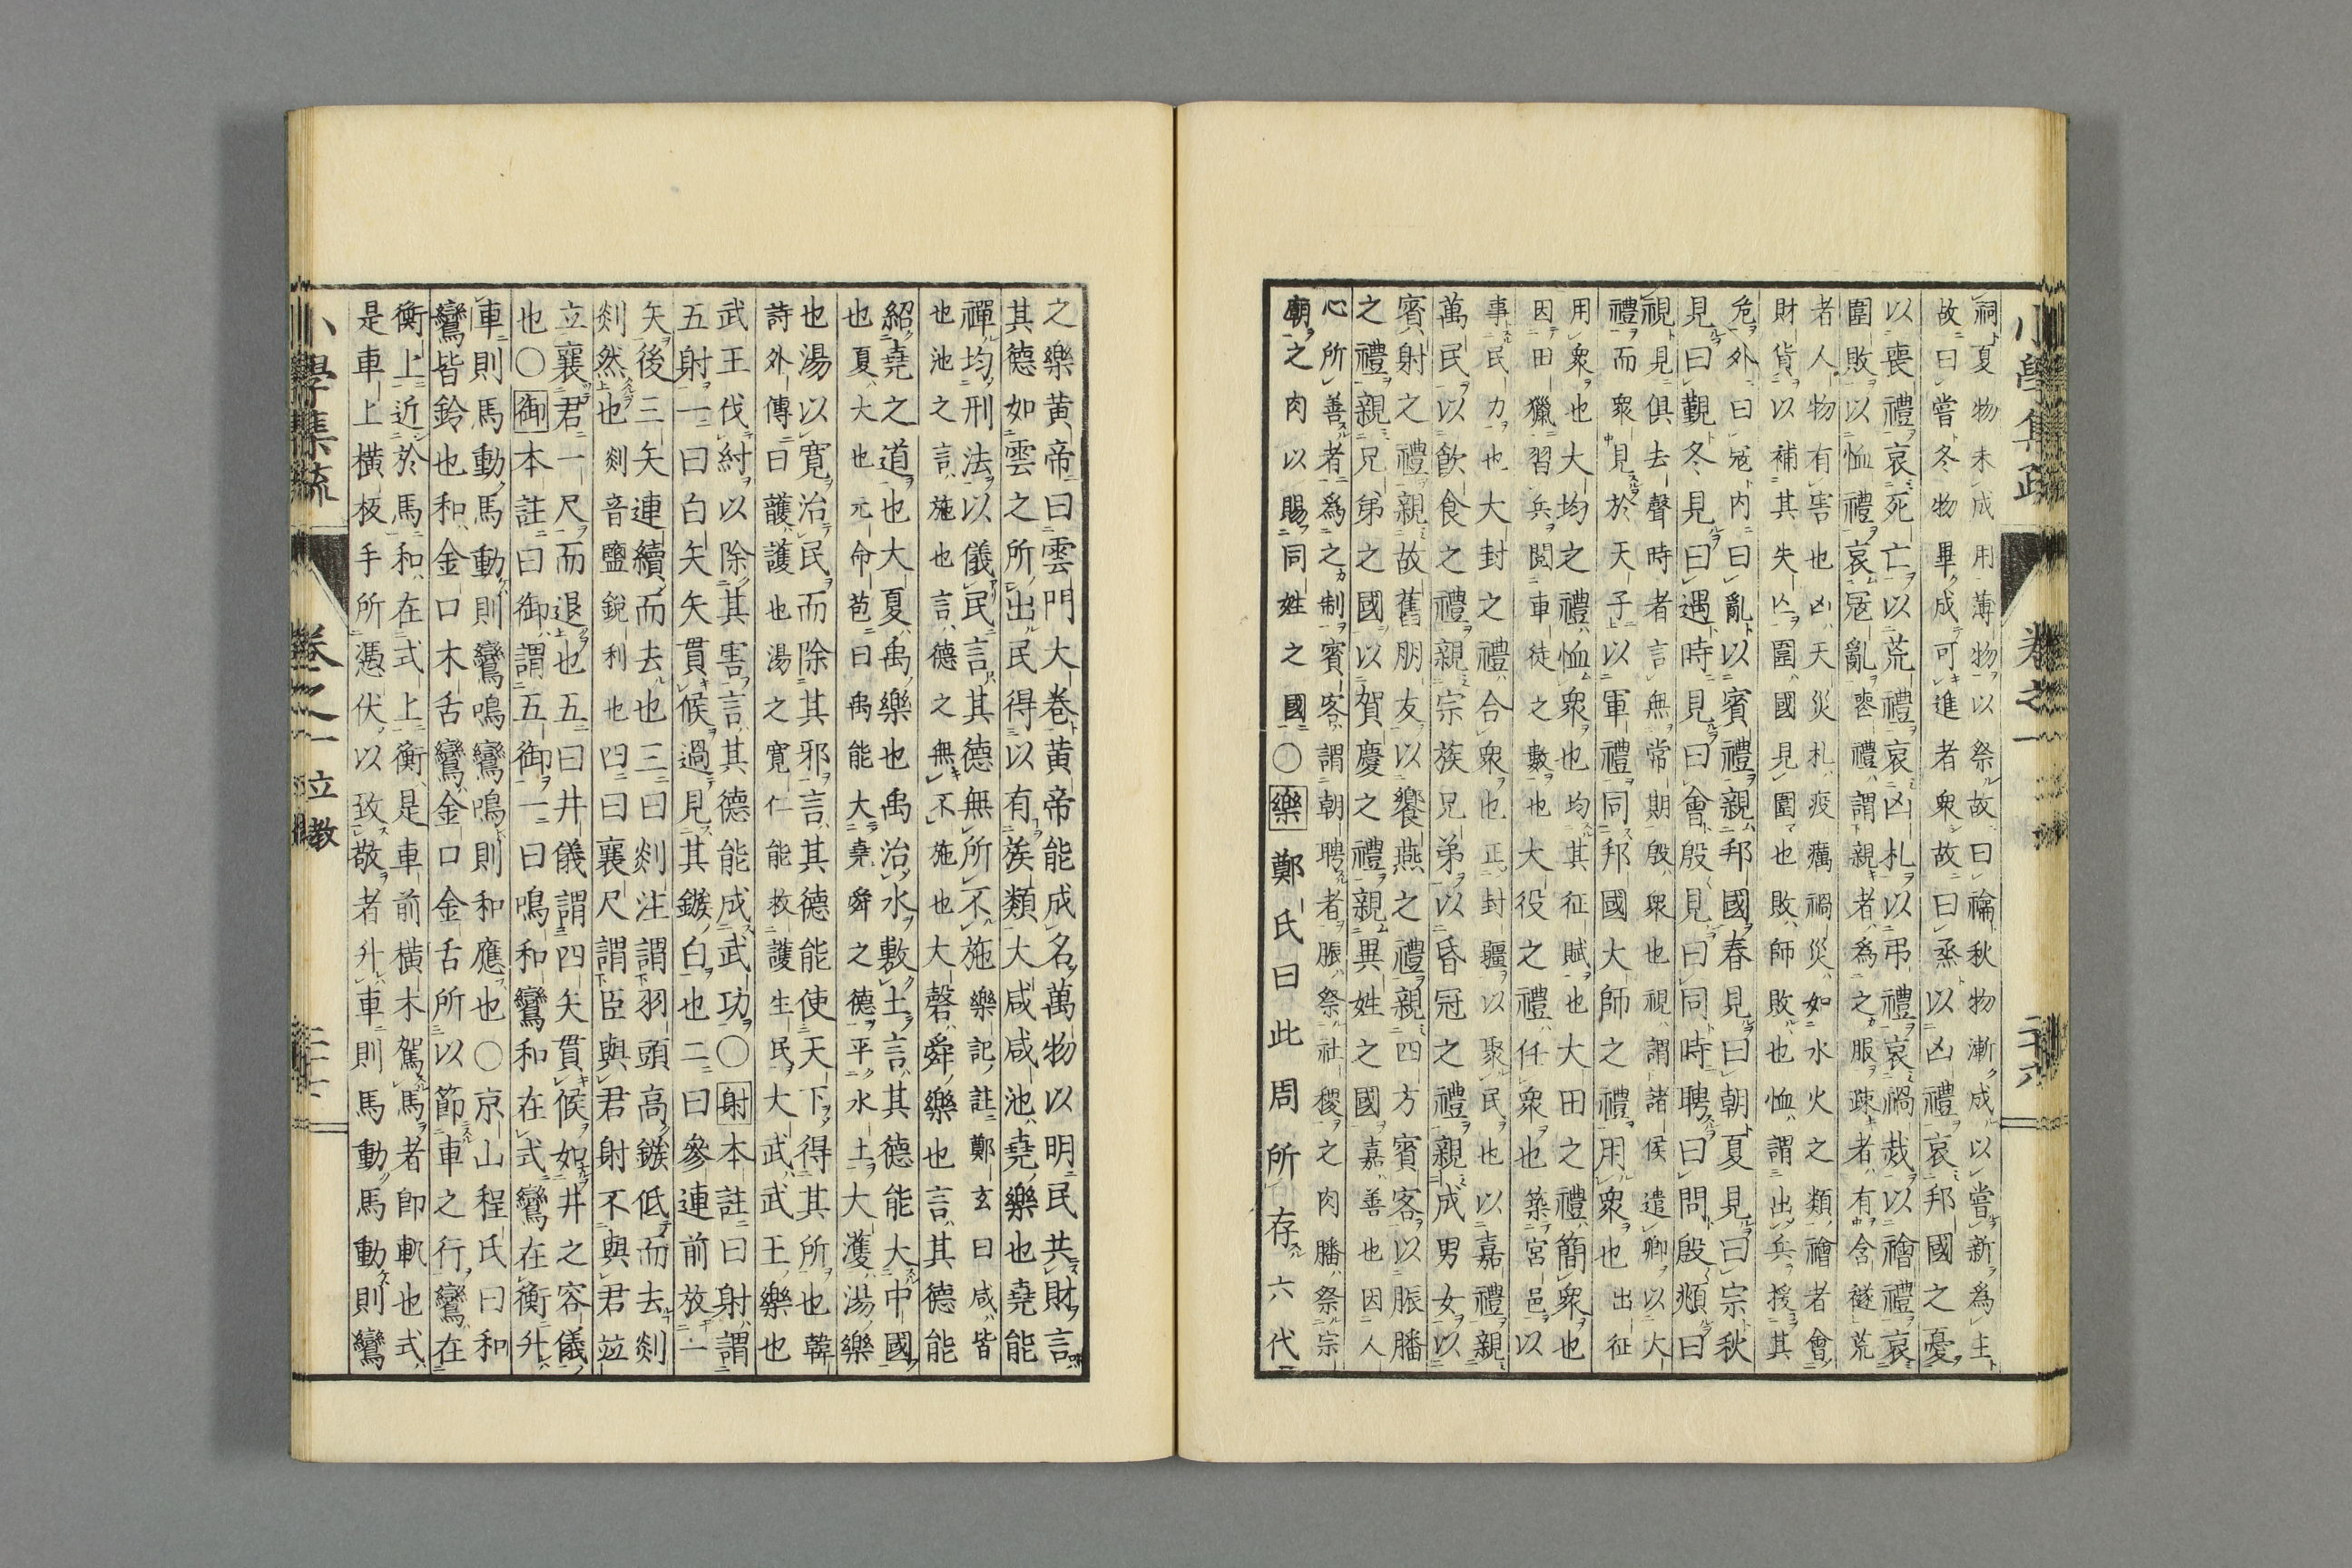 祠夏物未成用薄物以祭故曰禴秋物漸成以嘗新為主
故曰嘗冬物畢成可進者衆故曰烝以凶禮哀邦國之憂
以喪禮哀死亡以荒禮哀凶札以弔禮哀禍烖以禬禮哀
圍敗以恤禮哀冦亂喪禮謂親者為之服疎者有含襚荒
者人物有害也凶天災札疫癘禍災如水火之類禬者會
財貨以補其失亾圍國見圍也敗師敗也恤謂出兵援其
危外曰冦内曰亂以賓禮親邦國春見曰朝夏見曰宗秋
見曰覲冬見曰遇時見曰會殷見曰同時聘曰問殷頫曰
視見俱去聲時者言無常期殷衆也視謂諸侯遣卿以大
禮而衆見於天子以軍禮同邦國大師之禮用衆也出征
用衆也大均之禮恤衆也均其征賦也大田之禮簡衆也
因田獵習兵閲車徒之數也大役之禮任衆也築宮邑以
事民力也大封之禮合衆也正封疆以聚民也以嘉禮親
萬民以飲食之禮親宗族兄弟以昏冠之禮親成男女以
賓射之禮親故舊朋友以饗燕之禮親四方賓客以脤膰
之禮親兄弟之國以賀慶之禮親異姓之國嘉善也因人
心所善者為之制賓客謂朝聘者脤祭社稷之肉膰祭宗
廟之肉以賜同姓之國〇樂鄭氏曰此周所存六代
小學集疏 卷之一 二十六
之樂黄帝曰雲門大卷黄帝能成名萬物以明民共財言
其德如雲之所出民得以有族類大咸咸池堯樂也堯能
禪均刑法以儀民言其德無所不施樂記註鄭玄曰咸皆
也池之言施也言德之無不施也大磬舜樂也言其德能
紹堯之道也大夏禹樂也禹治水敷土言其德能大中國
也夏大也元命苞曰禹能大堯舜之德平水土大濩湯樂
也湯以寛治民而除其邪言其德能使天下得其所也韓
詩外傳曰頀護也湯之寛仁能救護生民大武武王樂也
武王伐紂以除其害言其德能成武功〇射本註曰射謂
五射一曰白矢矢貫候過見其鏃白也二曰參連前放一
矢後三矢連續而去也三曰剡注謂羽頭高鏃低而去剡
剡然也剡音鹽銳利也四曰襄尺謂臣與君射不與君竝
立襄君一尺而退也五曰井儀謂四矢貫候如井之容儀
也〇御本註曰御謂五御一曰鳴和鸞和在式鸞在衡升
車則馬動馬動則鸞鳴鸞鳴則和應也〇京山程氏曰和
鸞皆鈴也和金口木舌鸞金口金舌所以節車之行鸞在
衡上近於馬和在式上衡是車前横木駕馬者卽軏也式
是車上横板手所憑伏以致敬者升車則馬動馬動則鸞
小學集疏 卷之一 立教